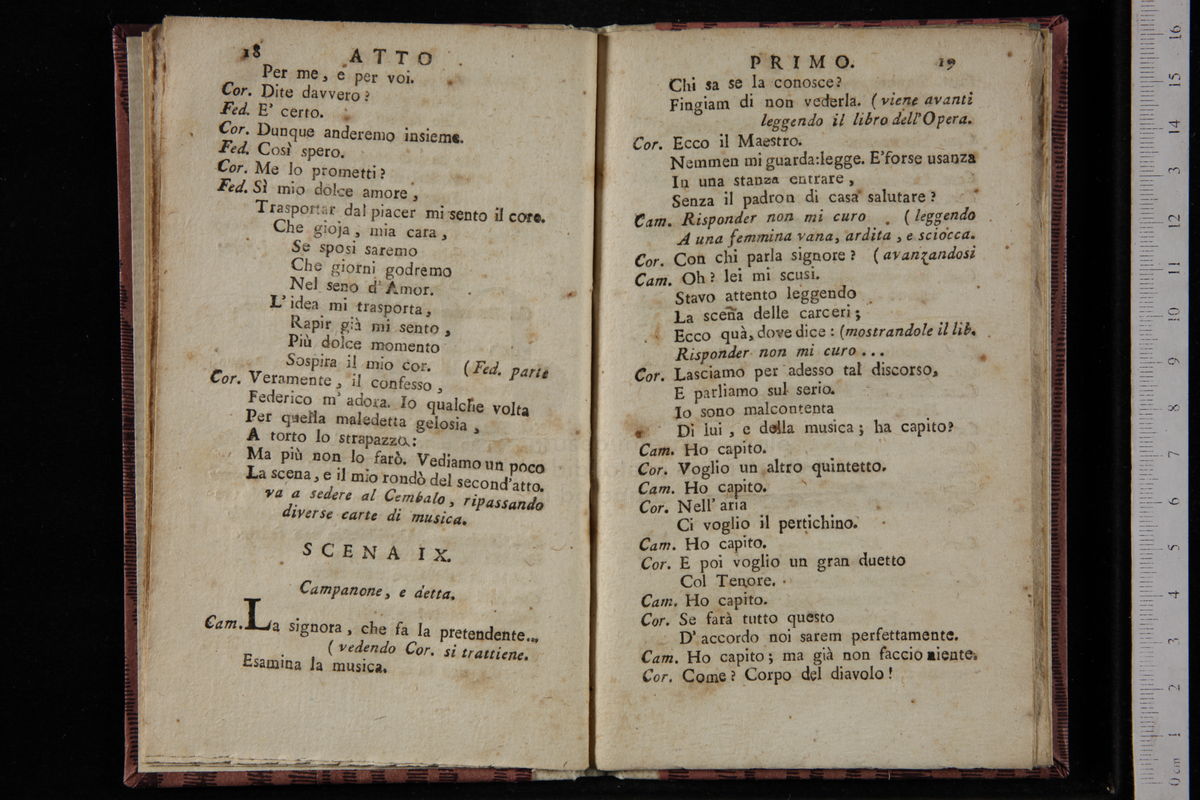 18 ATTO
Per me, e per voi.
Cor. Dite davvero?
Fed. E' certo.
Cor. Dunque anderemo insieme.
Fed. Così spero.
Cor. Me lo prometti?
Fed. Sì mio dolce amore,
Trasportar dal piacer mi sento il core.
Che gioja, mia cara,
Se sposi saremo
Che giorni godremo
Nel seno d'Amor.
L'idea mi trasporta,
Rapir già mi sento,
Più dolce momento
Sospira il mio cor. (Fed. parte
Cor. Veramente, il confesso,
Federico m'adora. Io qualche volta
Per quella maledetta gelosia,
A torto lo strapazzo:
Ma più non lo farò. Vediamo un poco
La scena, e il mio rondò del second'atto.
va a sedere al Cembalo, ripassando
diverse carte di musica.
SCENA IX.
Campanone, e detta.
Cam. La signora, che fa la pretendente...
(vedendo Cor. si trattiene.
Esamina la musica.
PRIMO. 19
Chi sa se la conosce?
Fingiam di non vederla. (viene avanti
leggendo il libro dell'Opera.
Cor. Ecco il Maestro.
Nemmen mi guarda:legge. E'forse usanza
In una stanza entrare,
Senza il padron di casa salutare?
Cam. Risponder non mi curo . (leggendo
A una femmina vana, ardita, e sciocca.
Cor. Con chi parla signore? (avanzandosi
Cam. Oh? lei mi scusi.
Stavo attento leggendo
La scena delle carceri;
Ecco quà, dove dice: (mostrandole il lib.
Risponder non mi curo...
Cor. Lasciamo per adesso tal discorso,
E parliamo sul serio.
Io sono malcontenta
Di lui, e della musica; ha capito?
Cam. Ho capito.
Cor. Voglio un altro quintetto.
Cam. Ho capito.
Cor. Nell'aria
Ci voglio il pertichino.
Cam. Ho capito.
Cor. E poi voglio un gran duetto
Col Tenore.
Cam. Ho capito.
Cor. Se farà tutto questo
D'accordo noi sarem perfettamente.
Cam. Ho capito; ma già non faccio niente.
Cor. Come? Corpo del diavolo!
0 cm 1 2 3 4 5 6 7 8 9 10 11 12 3 14 15 16